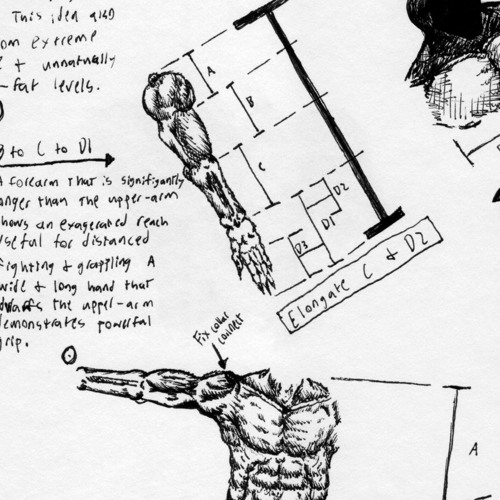 This idea also
om extreme
& unnaturally
-fat levels.
B to C to D1
A forearm that is significantly
onger than the upper-arm
hows an exagerated reach
useful for distanced
Fighting & grappling A
wide & long hand that
dwarfs the upper-arm
demonstrates powerful
grip.
A
B
C
D2
D1
D3
Elongate C & D2
Fix collar
connect
A